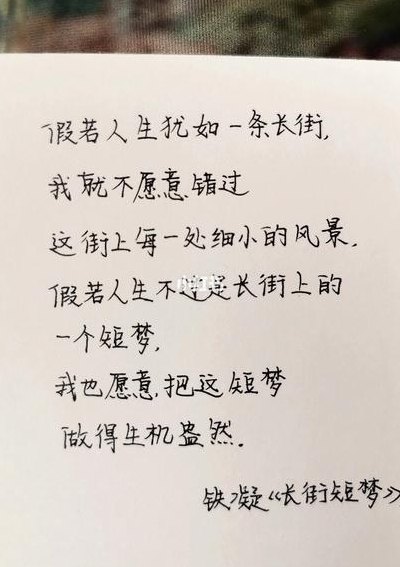 假若人生犹如一条长街,
我就不愿意错过
这街上每一处细小的风景.
假若人生不过是长街上的
一个短梦,
我也愿意,把这短梦
做得生机盎然.
铁凝《长街短梦》